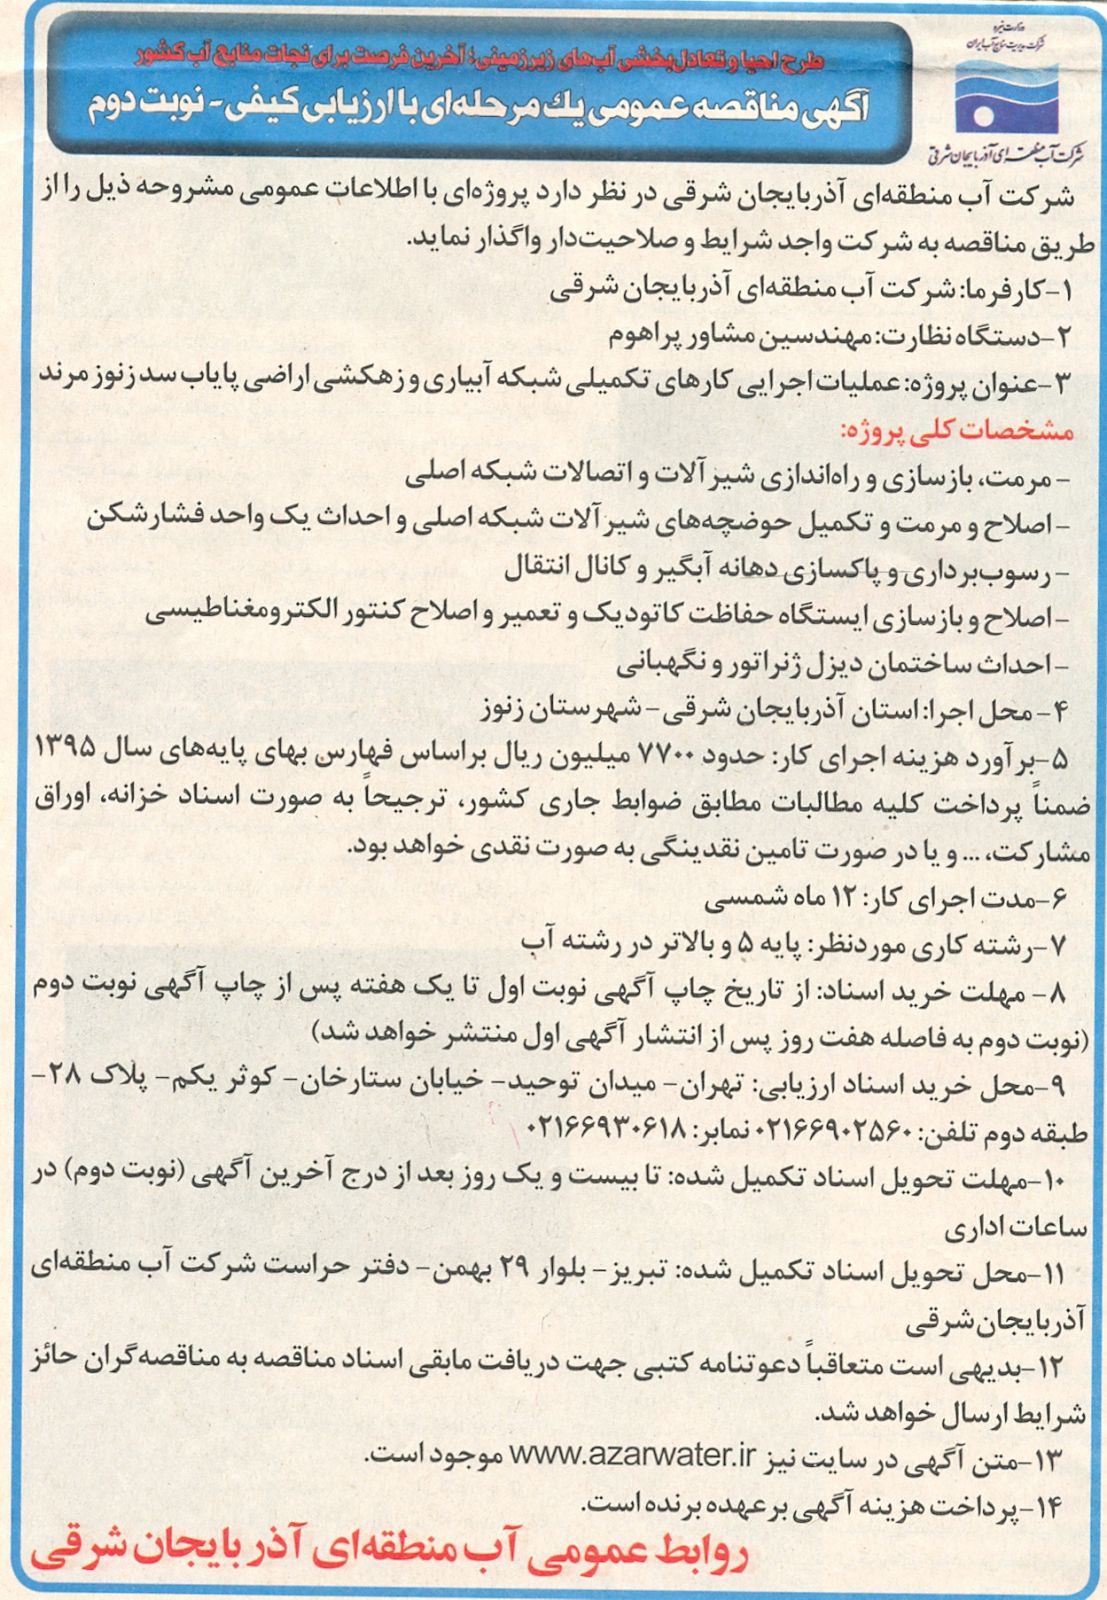 وزارت نیرو
شرکت مدیریت منابع آب ایران
شرکت آب منطقه‌ای آذربایجان شرقی
طرح احیا و تعادل‌بخشی آب‌های زیرزمینی؛ آخرین فرصت برای نجات منابع آب کشور
آگهی مناقصه عمومی یك مرحله‌ای با ارزیابی کیفی- نوبت دوم
شرکت آب منطقه‌ای آذربایجان شرقی در نظر دارد پروژه‌ای با اطلاعات عمومی مشروحه ذیل را از
طریق مناقصه به شرکت واجد شرایط و صلاحیت‌دار واگذار نماید.
۱-کارفرما: شرکت آب منطقه‌ای آذربایجان شرقی
۲-دستگاه نظارت: مهندسین مشاور پراهوم
۳-عنوان پروژه: عملیات اجرایی کارهای تکمیلی شبکه آبیاری و زهکشی اراضی پایاب سد زنوز مرند
مشخصات کلی پروژه:
- مرمت، بازسازی و راه‌اندازی شیرآلات و اتصالات شبکه اصلی
- اصلاح و مرمت و تکمیل حوضچه‌های شیرآلات شبکه اصلی و احداث یک واحد فشارشکن
- رسوب‌برداری و پاکسازی دهانه آبگیر و کانال انتقال
- اصلاح و بازسازی ایستگاه حفاظت کاتودیک و تعمیر و اصلاح کنتور الکترومغناطیسی
- احداث ساختمان دیزل ژنراتور و نگهبانی
۴- محل اجرا: استان آذربایجان شرقی- شهرستان زنوز
۵-برآورد هزینه اجرای کار: حدود ۷۷۰۰ میلیون ریال براساس فهارس بهای پایه‌های سال ۱۳۹۵
ضمناً پرداخت کلیه مطالبات مطابق ضوابط جاری کشور، ترجیحاً به صورت اسناد خزانه، اوراق
مشارکت، ... و یا در صورت تامین نقدینگی به صورت نقدی خواهد بود.
۶-مدت اجرای کار: ۱۲ ماه شمسی
۷-رشته کاری موردنظر: پایه ۵ و بالاتر در رشته آب
۸- مهلت خرید اسناد: از تاریخ چاپ آگهی نوبت اول تا یک هفته پس از چاپ آگهی نوبت دوم
(نوبت دوم به فاصله هفت روز پس از انتشار آگهی اول منتشر خواهد شد)
۹-محل خرید اسناد ارزیابی: تهران- میدان توحید- خیابان ستارخان- کوثر یکم- پلاک ۲۸-
طبقه دوم تلفن: ۰۲۱۶۶۹۰۲۵۶۰ نمابر: ۰۲۱۶۶۹۳۰۶۱۸
۱۰-مهلت تحویل اسناد تکمیل شده: تا بیست و یک روز بعد از درج آخرین آگهی (نوبت دوم) در
ساعات اداری
۱۱-محل تحویل اسناد تکمیل شده: تبریز- بلوار ۲۹ بهمن- دفتر حراست شرکت آب منطقه‌ای
آذربایجان‌شرقی
۱۲-بدیهی است متعاقباً دعوتنامه کتبی جهت دریافت مابقی اسناد مناقصه به مناقصه‌گران حائز
شرایط ارسال خواهد شد.
۱۳-متن آگهی در سایت نیز www.azarwater.ir موجود است.
۱۴-پرداخت هزینه آگهی برعهده برنده است.
روابط عمومی آب منطقه‌ای آذربایجان شرقی